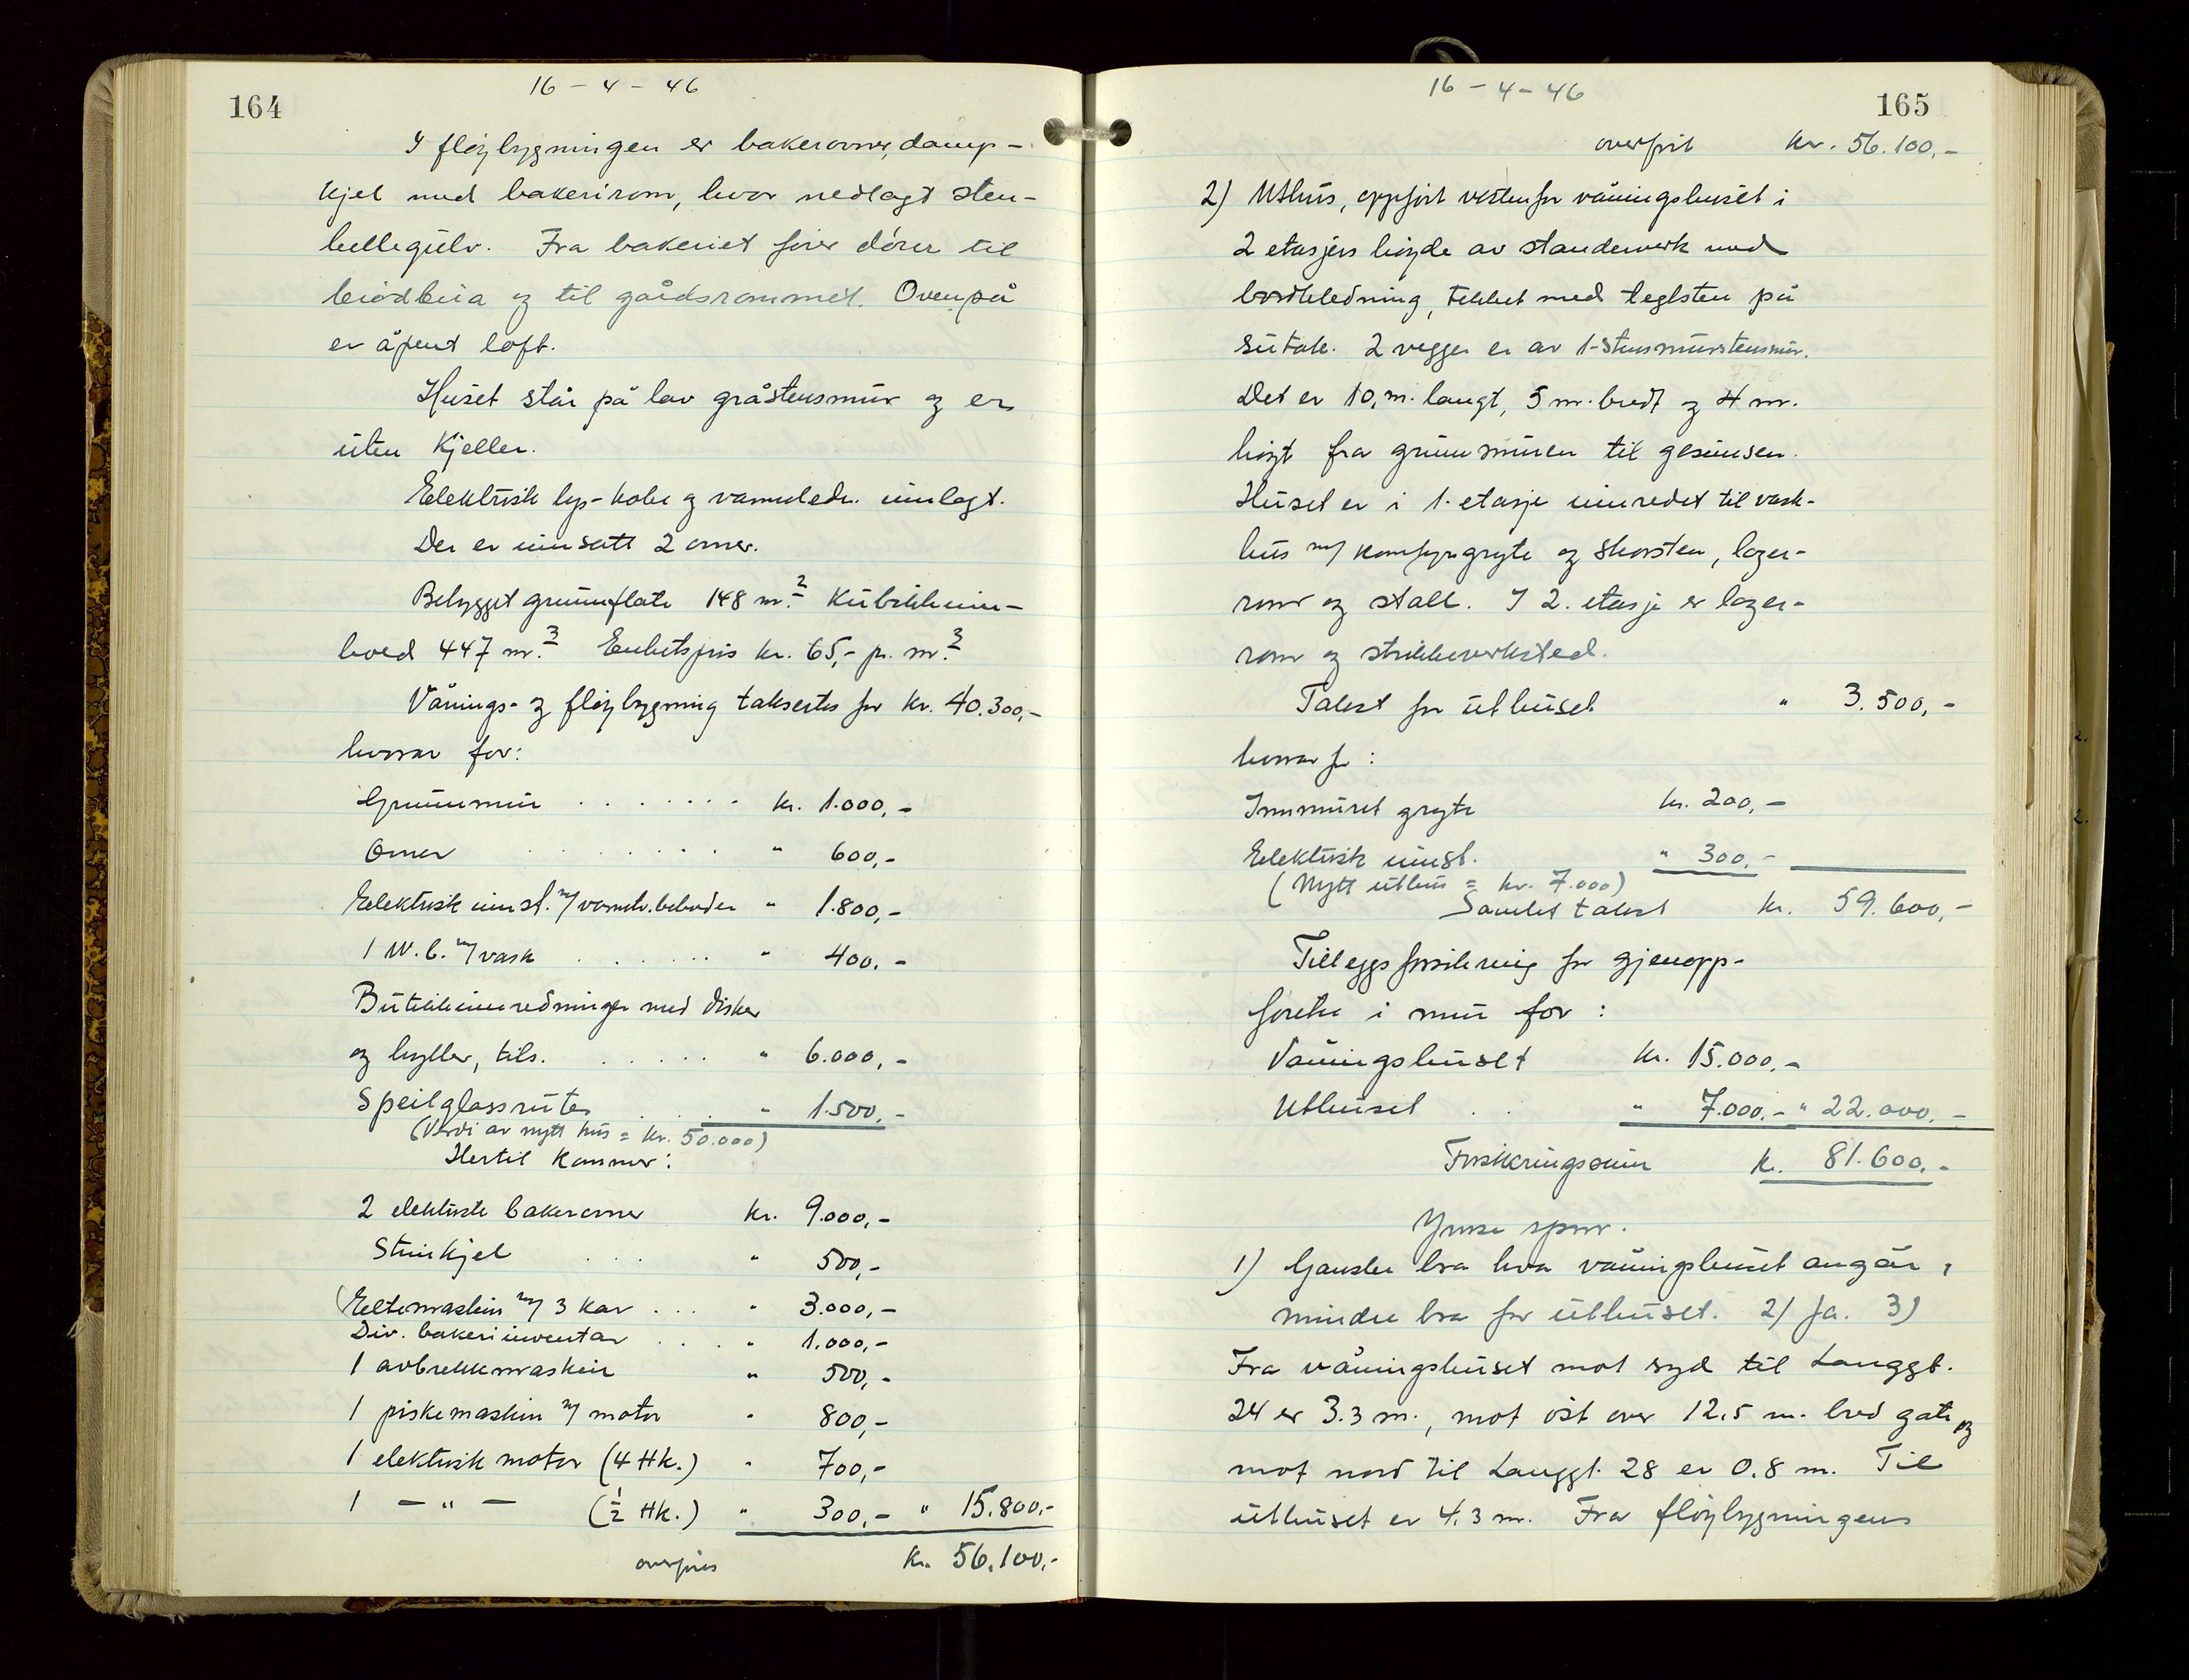 164
16 - 4 - 46
I fløjbygningen er bakerovner, damp-
kjel med bakerirom, hvor nedlagt sten-
hellegulv. Fra bakeriet fører dører til
brødbua og til gårdsrommet. Ovenpå
er åpent loft.
Huset står på lav gråstensmur og er
uten kjeller.
Elektrisk lys- koke og vannledn. innlagt.
Der er innsatt 2 ovner.
Bebygget grunnflate 148 m.² Kubikkinn-
hold 447 m.³ Enhetspris kr. 65,- pr. m.³
Vånings- og fløjbygning takseres for kr. 40.300,-
hvorav for:
Grunnmur . . . . . . . . kr. 1.000,-
Ovner . . . . . . . . " 600,-
Elektrisk innst. m/ varmtv.beholder " 1.800,-
1 W.C. m/ vask . . . . . . " 400.-
Butikkinnredninger med disker
og hyller, tils. . . . . . " 6.000,-
Speilglassruter . . . . " 1.500,-
(Verdi av nytt hus = kr. 50.000)
Hertil kommer:
2 elektriske bakerovner kr. 9.000,-
Stimkjel . . . " 500,-
(Eltemaskin m/ 3 kar . . . " 3.000,-
Div. bakeriinventar . . . . " 1.000,-
1 avbrekkmaskin " 500,-
1 piskemaskin m/ motor " 800,-
1 elektrisk motor (4 Hk.) " 700,-
1 - " - (½ Hk.) " 300,- " 15.800,-
overføres kr. 56.100,-
165
16 - 4 - 46
overført kr. 56.100,-
2) Uthus, oppført vestenfor våningshuset i
2 etasjers høyde av standerverk med
bordkledning, tekket med teglsten på
sutak. 2 vegger er av 1-stens murstensmur.
Det er 10, m. langt, 5 m. bredt og 4 m.
høyt fra grunnmuren til gesimsen.
Huset er i 1. etasje innredet til vask-
hus m/ komfyrgryte og skorsten, lager-
rom og stall. I 2. etasje er lager-
rom og strikkeverksted.
Takst for uthuset " 3.500,-
hvorav for:
Innmuret gryte kr. 200,-
Elektrisk innst. " 300,-
(Nytt uthus = kr. 7.000)
Samlet takst kr. 59.600,-
Tilleggsforsikring for gjenopp-
førelse i mur for:
Våningshuset kr. 15.000,-
Uthuset . . " 7.000.- " 22.000,-
Forsikringssum kr. 81.600,-
1) Ganske bra hva våningshuset angår,
mindre bra for uthuset. 2) Ja. 3)
Fra våningshuset mot syd til Langgt.
24 er 3.3 m., mot øst over 12.5 m. bred gate og
mot nord til Langgt. 28 er 0.8 m. Til
uthuset er 4.3 m. Fra fløjbygningens